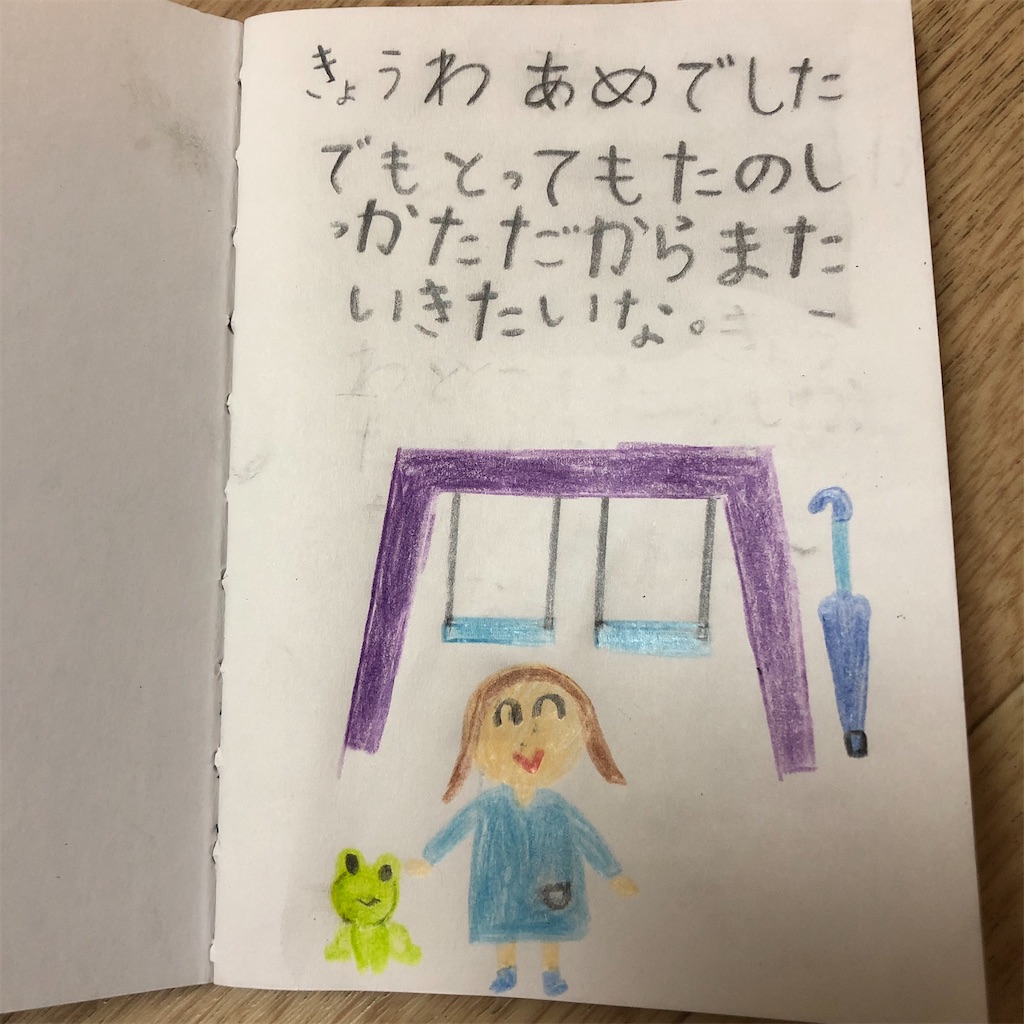 きょうわ あめでした
でもとってもたのし
っかただからまた
いきたいな。